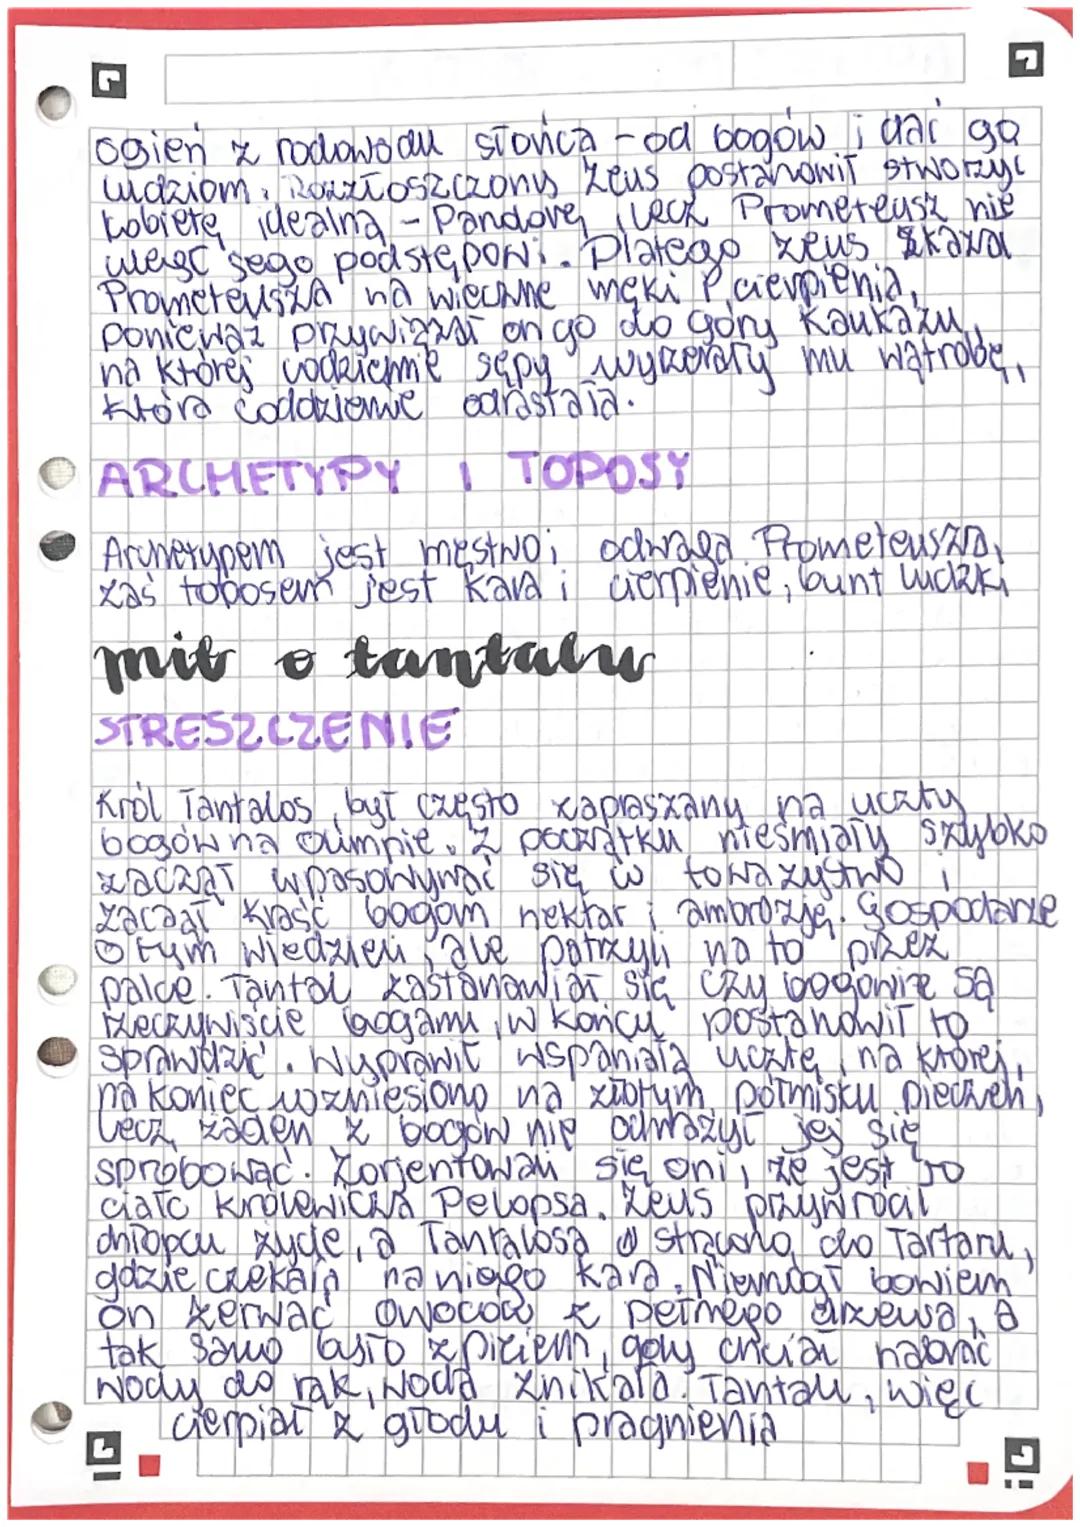 ogień z rodowodu słońca - od bogów i dać go
ludziom. Rozzłoszczony Zeus postanowił stworzyć
kobietę idealną - Pandorę, lecz Prometeusz nie
uległ jego podstępowi. Dlatego Zeus skazał
Prometeusza na wieczne męki i cierpienia,
ponieważ przywiązał on go do góry Kaukazu,
na której codziennie sępy wyżerały mu wątrobę,
która codziennie odrastała.
ARCHETYPY I TOPOSY
Archetypem jest męstwo i odwaga Prometeusza,
zaś toposem jest kara i cierpienie, bunt ludzki
mit o tantalu
STRESZCZENIE
Król Tantalos, był często zapraszany na uczty
bogów na Olimpie. Z początku nieśmiały szybko
zaczął wpasowywać się w towazystwo i
zaczął kraść bogom nektar i ambrozję. Gospodarze
o tym wiedzieli, ale patrzyli na to przez
palce. Tantal zastanawiał się czy bogowie są
rzeczywiście bogami, w końcu postanowił to
sprawdzić. Wyprawił wspaniałą ucztę, na której,
na koniec wzniesiono na złotym półmisku pieczeń,
lecz żaden z bogów nie odważył jej się
spróbować. Zorjentowali się oni, że jest to
ciało królewicza Pelopsa. Zeus przywrócił
chłopcu życie, a Tantalosa strącono do Tartaru,
gdzie czekała na niego kara. Niemógł bowiem
on zerwać owoców z pełnego drzewa, a
tak samo było z piciem, gdy chciał nabrać
wody do rąk, woda znikała. Tantal, więc
cierpiał z głodu i pragnienia